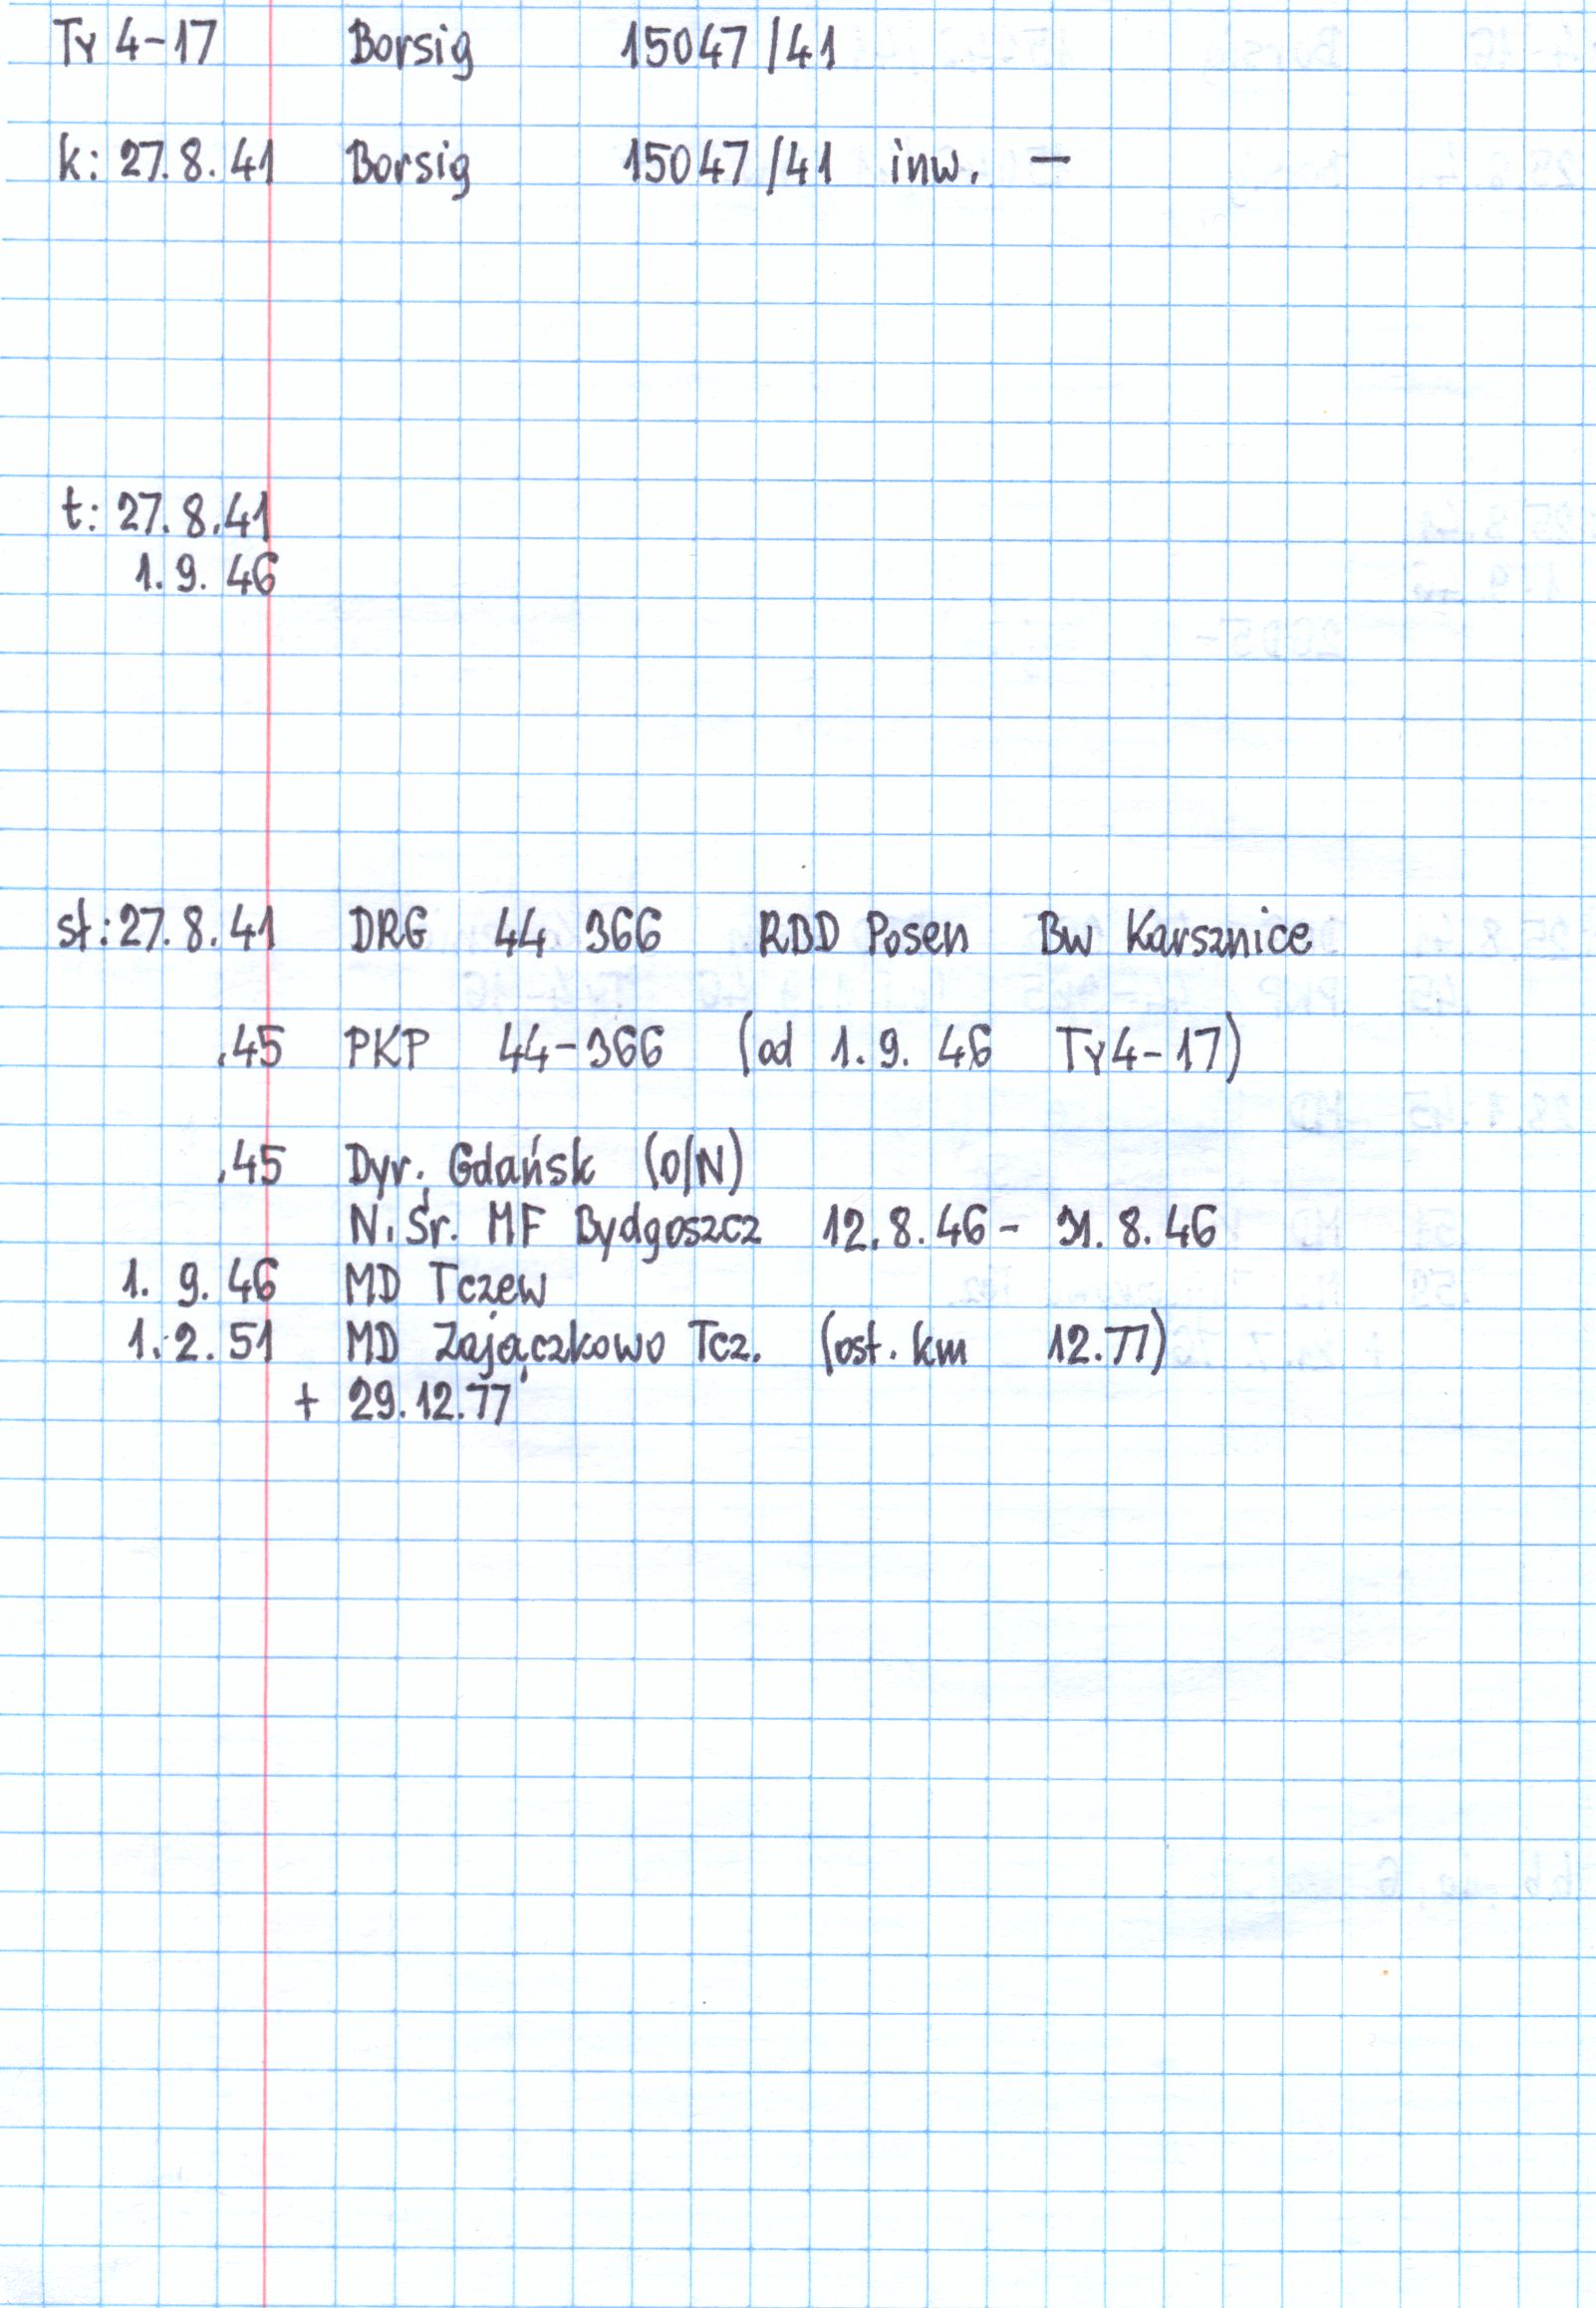 Ty 4-17 Borsig 15047/41
k: 27.8.41 Borsig 15047/41 inw. —
t: 27.8.41
1.9.46
st: 27.8.41 DRG 44 366 RBD Posen Bw Karsznice
.45 PKP 44-366 (od 1.9.46 Ty4-17)
.45 Dyr. Gdańsk (O/N)
N.Śr. MF Bydgoszcz 12.8.46 - 31.8.46
1.9.46 MD Tczew
1.2.51 MD Zajączkowo Tcz. (ost. km 12.77)
+ 29.12.77